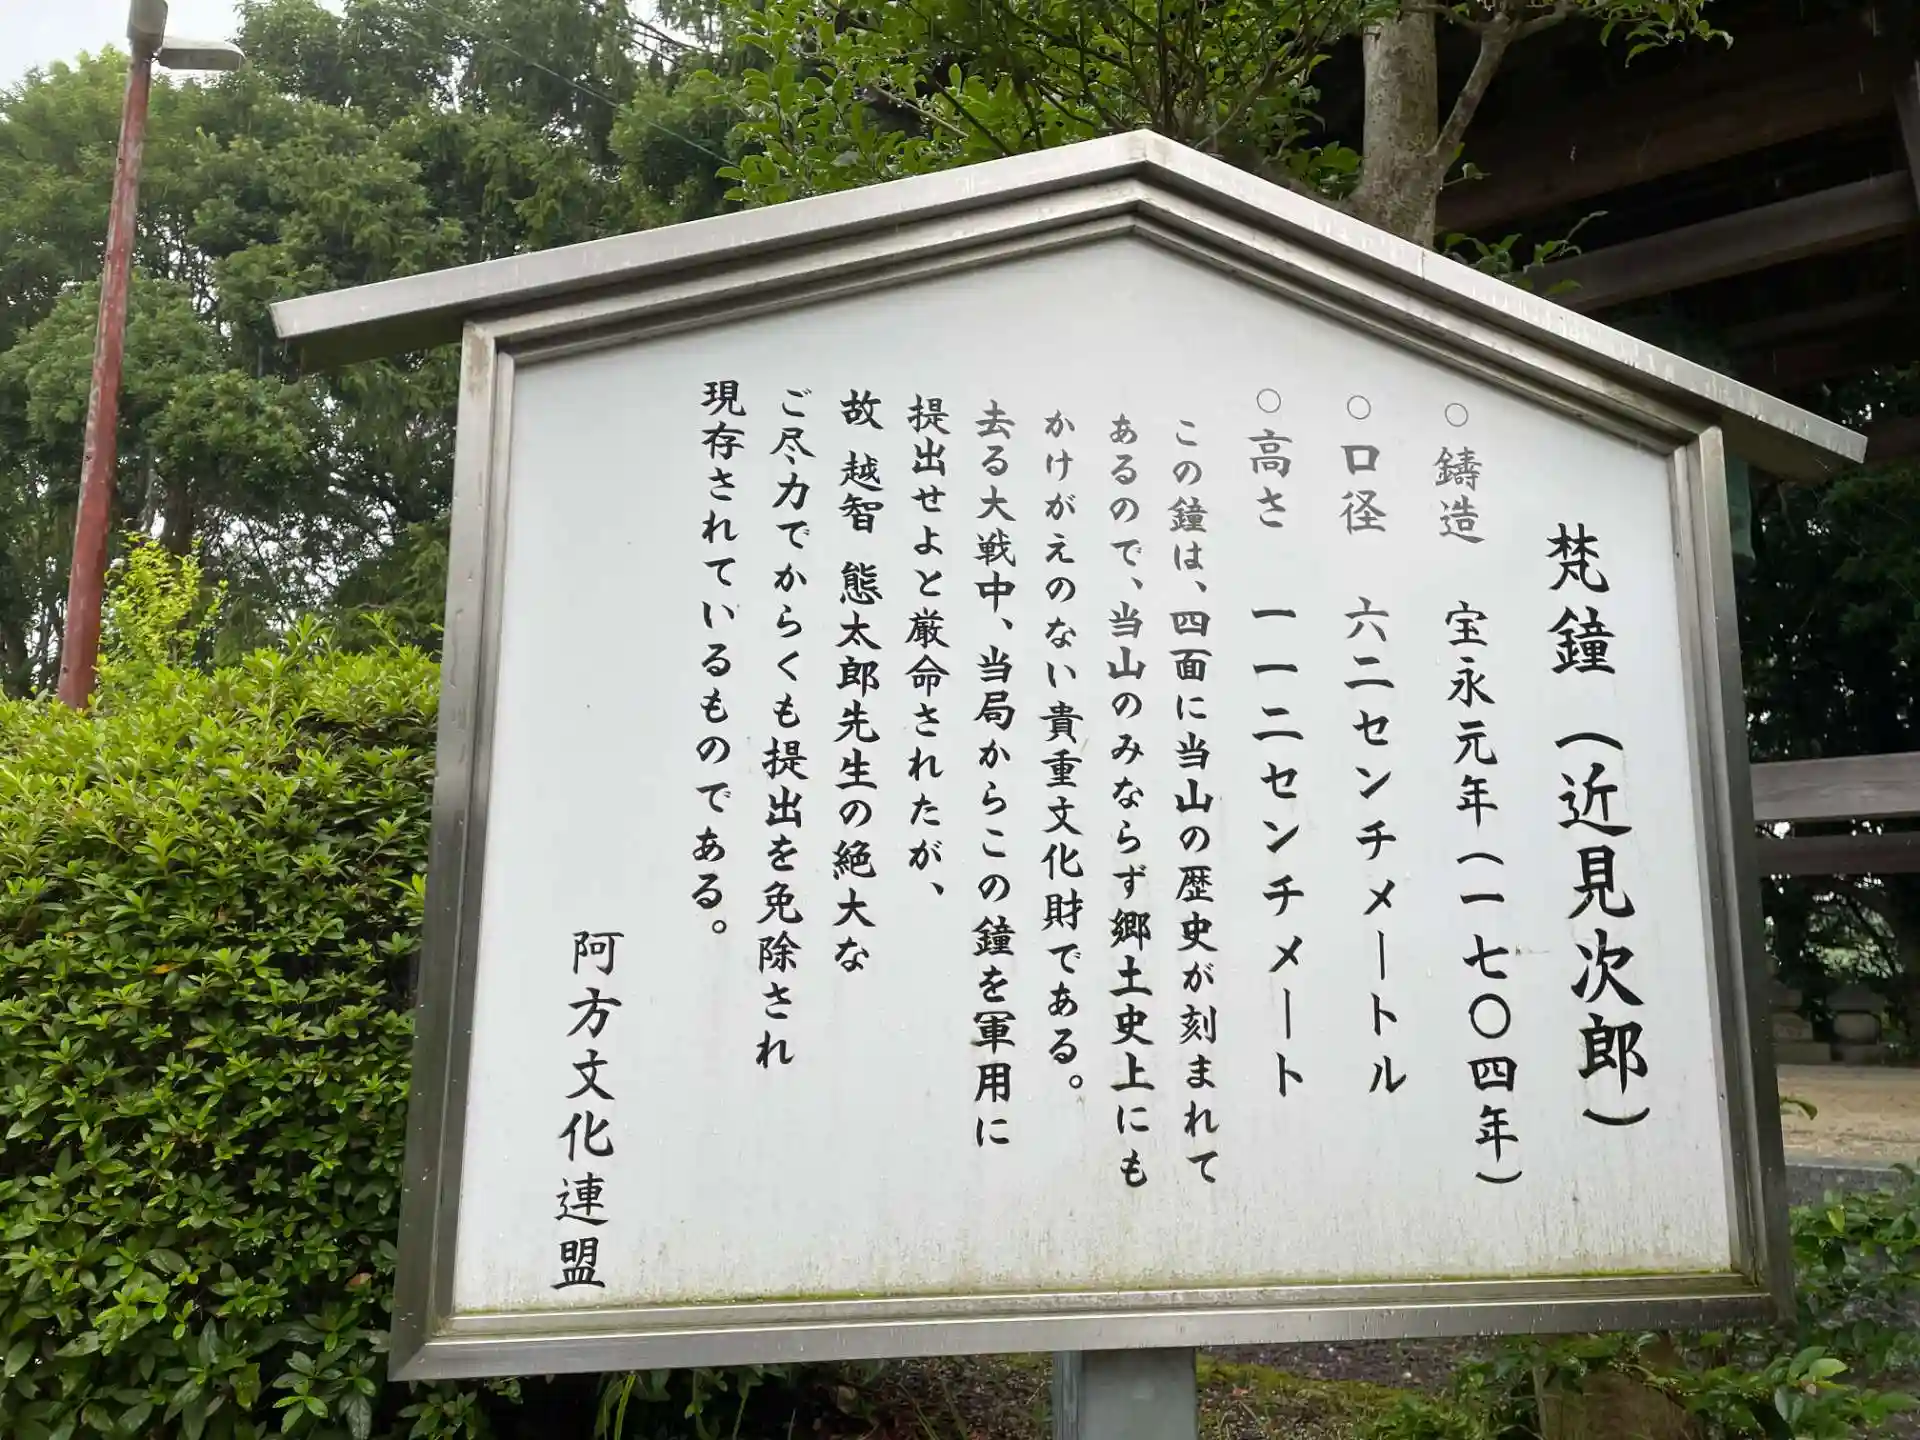 梵鐘（近見次郎）
○鋳造　宝永元年（一七〇四年）
○口径　六二センチメートル
○高さ　一一二センチメート
この鐘は、四面に当山の歴史が刻まれて
あるので、当山のみならず郷土史上にも
かけがえのない貴重文化財である。
去る大戦中、当局からこの鐘を軍用に
提出せよと厳命されたが、
故 越智 態太郎先生の絶大な
ご尽力でからくも提出を免除され
現存されているものである。
阿方文化連盟